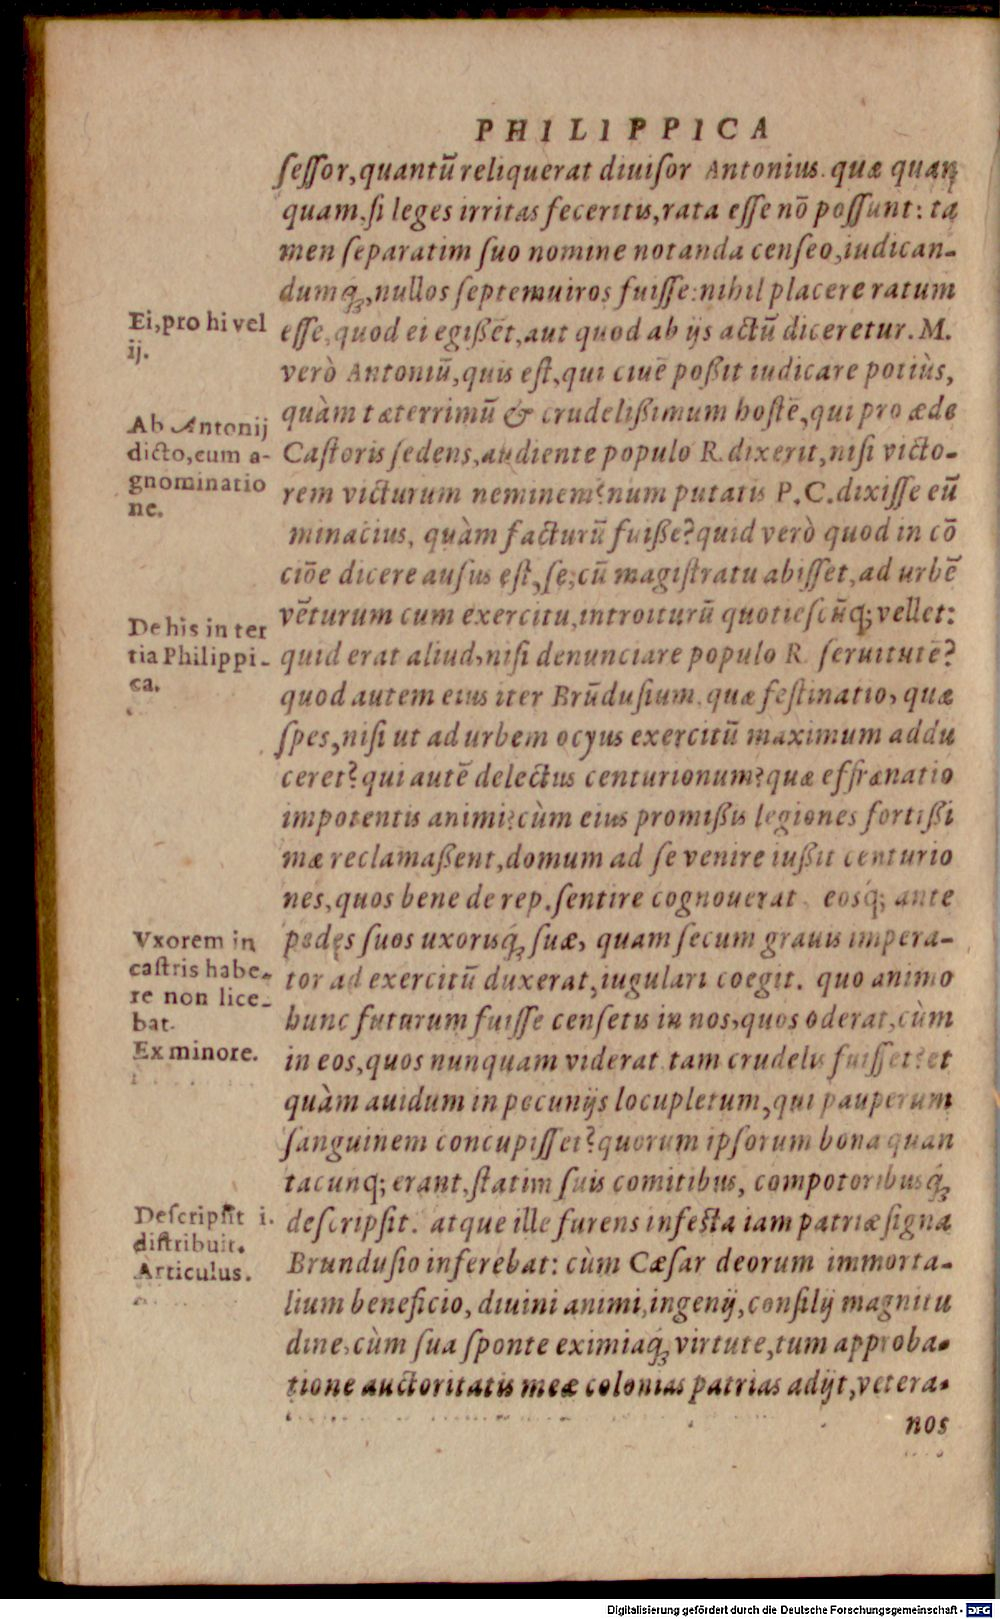 PHILIPPICA
ſeſſor, quantū reliquerat diuiſor Antonius. quæ quan
quam, ſi leges irritas feceritis, rata eſſe nō poſſunt: ta
men ſeparatim ſuo nomine notanda cenſeo, iudican-
dumq́ꝫ, nullos ſeptemuiros fuiſſe: nihil placere ratum
eſſe, quod ei egißēt, aut quod ab ijs actū diceretur. M.
verò Antoniū, quis eſt, qui ciuē poßit iudicare potiùs,
quàm tæterrimū & crudelißimum hoſtē, qui pro æde
Caſtoris ſedens, audiente populo R. dixerit, niſi victo-
rem victurum neminem? num putatis P. C. dixiſſe eū
minacius, quàm facturū fuiße? quid verò quod in cō
ciōe dicere auſus eſt, ſe, cū magiſtratu abiſſet, ad urbē
vēturum cum exercitu, introiturū quotieſcūq; vellet:
quid erat aliud, niſi denunciare populo R. ſeruitutē?
quod autem eius iter Brūduſium, quæ feſtinatio, quæ
ſpes, niſi ut ad urbem ocyus exercitū maximum addu
ceret? qui autē delectus centurionum? quæ effrænatio
impotentis animi? cùm eius promißis legiones fortißi
mæ reclamaßent, domum ad ſe venire iußit centurio
nes, quos bene de rep. ſentire cognouerat eosq́; ante
pedes ſuos uxorisq́ꝫ ſuæ, quam ſecum grauis impera-
tor ad exercitū duxerat, iugulari coegit. quo animo
hunc futurum fuiſſe cenſetis in nos, quos oderat, cùm
in eos, quos nunquam viderat tam crudelis fuiſſet? et
quàm auidum in pecunijs locupletum, qui pauperum
ſanguinem concupiſſet? quorum ipſorum bona quan
tacunq; erant, ſtatim ſuis comitibus, compotoribusq́ꝫ
deſcripſit. atque ille furens infeſta iam patriæ ſigna
Brunduſio inferebat: cùm Cæſar deorum immorta-
lium beneficio, diuini animi, ingenij, conſilij magnitu
dine, cùm ſua ſponte eximiaq́ꝫ virtute, tum approba-
tione auctoritatis meæ colonias patrias adijt, vetera-
nos
Ei, pro hi vel
ij.
Ab Antonij
dicto, eum a-
gnominatio
ne.
De his in ter
tia Philippi-
ca.
Vxorem in
caſtris habe-
re non lice-
bat.
Ex minore.
Deſcripſit i.
diſtribuit.
Articulus.
Digitalisierung gefördert durch die Deutsche Forschungsgemeinschaft - DFG